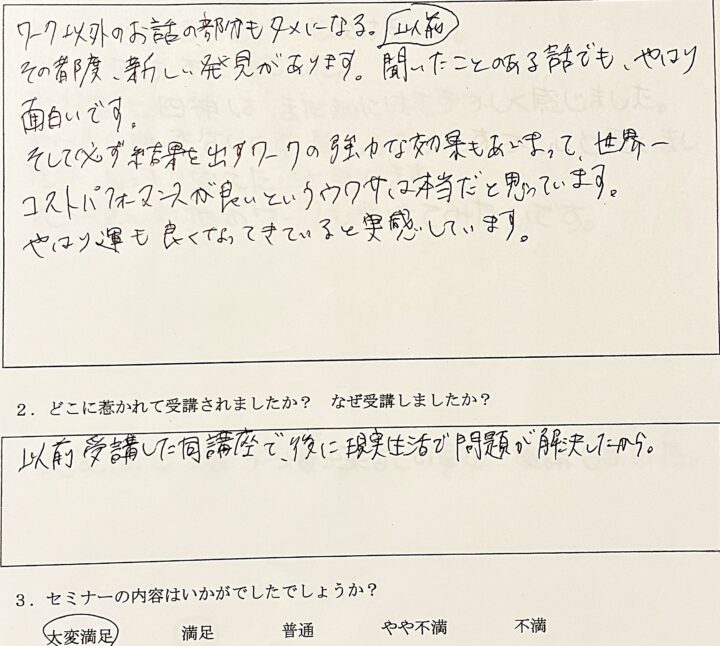 ワーク以外のお話の部分もタメになる。以前
その都度、新しい発見があります。聞いたことのある話でも、やはり
面白いです。
そして必ず結果を出すワークの強力な効果もあいまって、世界一
コストパフォーマンスが良いというウワサは本当だと思っています。
やはり運も良くなってきていると実感しています。
2．どこに惹かれて受講されましたか？　なぜ受講しましたか？
以前受講した同講座で、後に現実生活で問題が解決したから。
3．セミナーの内容はいかがでしたでしょうか？
大変満足　満足　普通　やや不満　不満